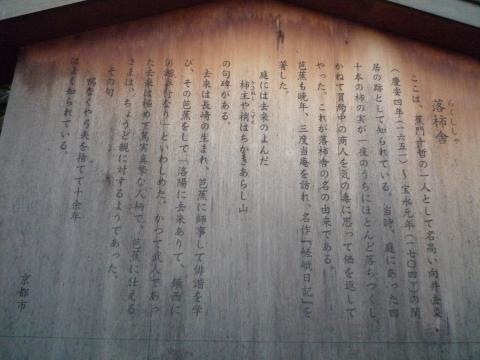 らくししゃ
落柿舎
ここは、蕉門十哲の一人として名高い向井去来
(慶安四年(一六五一)～宝永元年(一七〇四))の閑
居の跡として知られている。当時、庭にあった四
十本の柿の実が一夜のうちにほとんど落ちつくし、
かねて買約中の商人を気の毒に思って価を返して
やった。これが落柿舎の名の由来である。
芭蕉も晩年、三度当庵を訪れ、名作『嵯峨日記』を
著した。
庭には去来のよんだ
柿主や梢はちかきあらし山
の句碑がある。
去来は長崎の生まれ、芭蕉に師事して俳諧を学
び、その芭蕉をして「洛陽に去来ありて、鎮西に
俳諧奉行なり」といわしめた。かつて武人であっ
た去来は極めて篤実真摯な人柄で、芭蕉に仕える
さまは、ちょうど親に対するようであった。
その句
何事ぞ花みる人の長刀